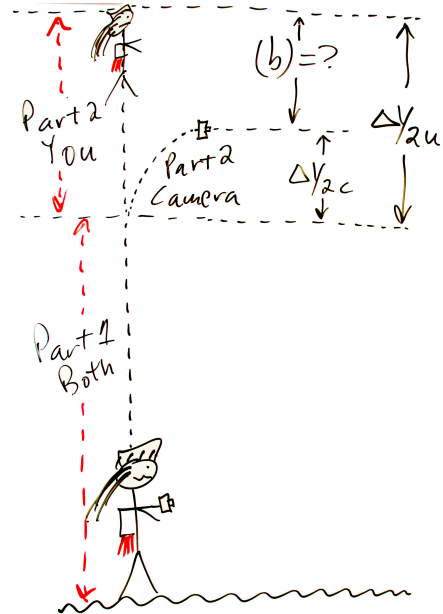 (b)=?
Part 2
You
ΔY2u
Part 2
Camera
ΔY2c
Part 1
Both